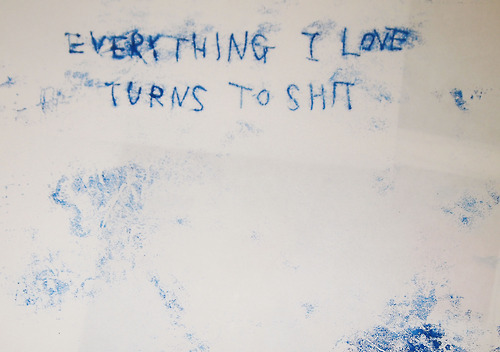 EVERYTHING I LOVE
TURNS TO SHIT